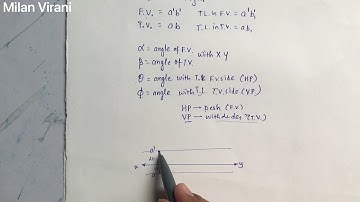 Milan Virani
F.V. = a'b' T.L. in F.V. = a'b'₁
T.V. = ab T.L. in T.V. = ab₁
α = angle of F.V. with XY
β = angle of T.V.
θ = angle with T.L F.V. side (HP)
φ = angle with T.L T.V. side (V.P)
HP → Dash (F.V.)
VP → without dash (T.V.)
a'
x y
a